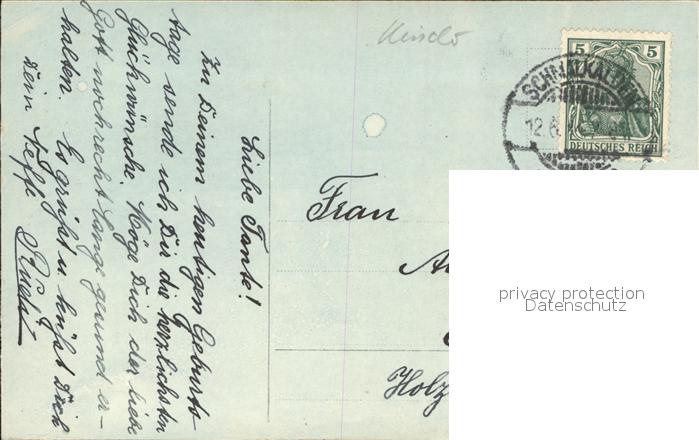 Kinder
5 5
SCHMALKALDEN
12.6.
DEUTSCHES REICH
Liebe Tante!
Zu Deinem heutigen Geburts-
tage sende ich Dir die herzlichsten
Glückwünsche. Möge Dich der liebe
Gott noch recht lange gesund er-
halten. Es grüßt u. küßt Dich
Dein Neffe Rudi
Frau
Holz
privacy protection
Datenschutz